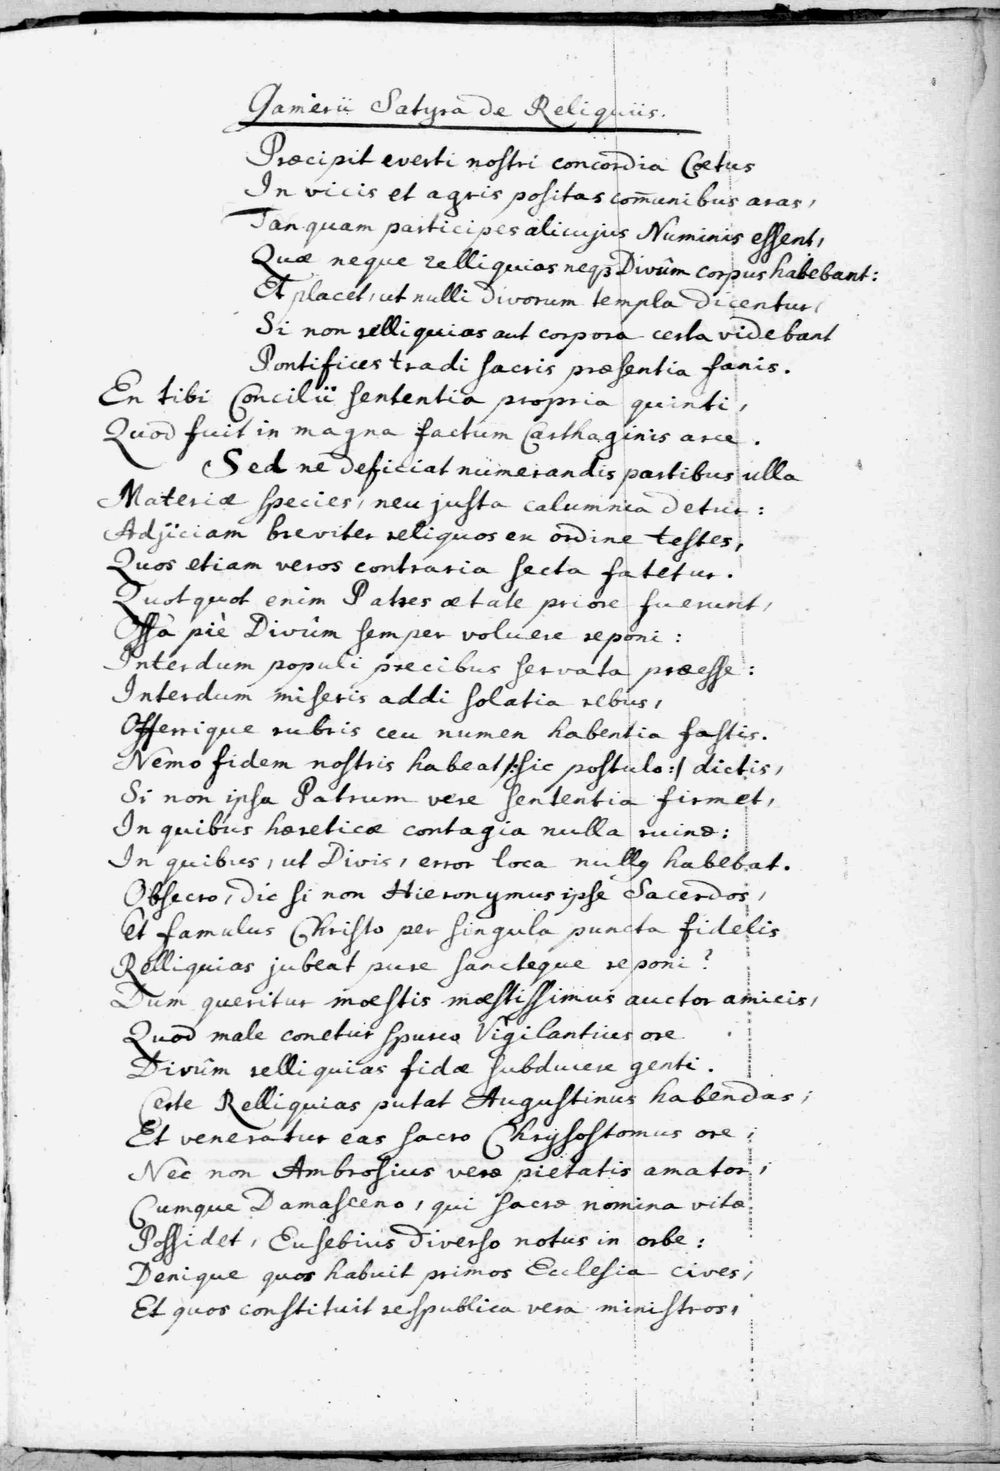 Gamerii Satyra de Reliquiis.
Præcipit everti nostri concordia Cœtus
In vicis et agris positas com̄unibus aras,
Tanquam participes alicujus Numinis essent,
Quæ neque relliquias neqꝫ Divûm corpus habebant:
Et placet, ut nulli divorum templa dicentur,
Si non relliquias aut corpora certa videbant
Pontifices tradi sacris præsentia fanis.
En tibi Concilii sententia propria quinti,
Quod fuit in magna factum Carthaginis arce.
Sed ne deficiat numerandis partibus ulla
Materiæ species, neu justa calumnia detur:
Adjiciam breviter reliquos en ordine testes,
Quos etiam veros contraria secta fatetur.
Quotquot enim Patres ætate priore fuerunt,
Ossa piè Divûm semper voluere reponi:
Interdum populi precibus servata præesse:
Interdum miseris addi solatia rebus,
Offerrique rubris ceu numen habentia fastis.
Nemo fidem nostris habeat /:sic postulo:/ dictis,
Si non ipsa Patrum vere sententia firmet,
In quibus hæreticæ contagia nulla ruinæ:
In quibus, ut Divis, error loca nulla habebat.
Obsecro, dic si non Hieronymus ipse Sacerdos,
Et famulus Christo per singula puncta fidelis
Relliquias jubeat pure sancteque reponi?
Dum queritur mœstis mœstissimus auctor amicis,
Quod male conetur spurco Vigilantius ore
Divûm relliquias fidæ subducere genti.
Certe Relliquias putat Augustinus habendas;
Et veneratur eas sacro Chrysostomus ore;
Nec non Ambrosius veræ pietatis amator;
Cumque Damasceno, qui sacræ nomina vitæ
Possidet, Eusebius diverso notus in orbe:
Denique quos habuit primos Ecclesia cives;
Et quos constituit respublica vera ministros,